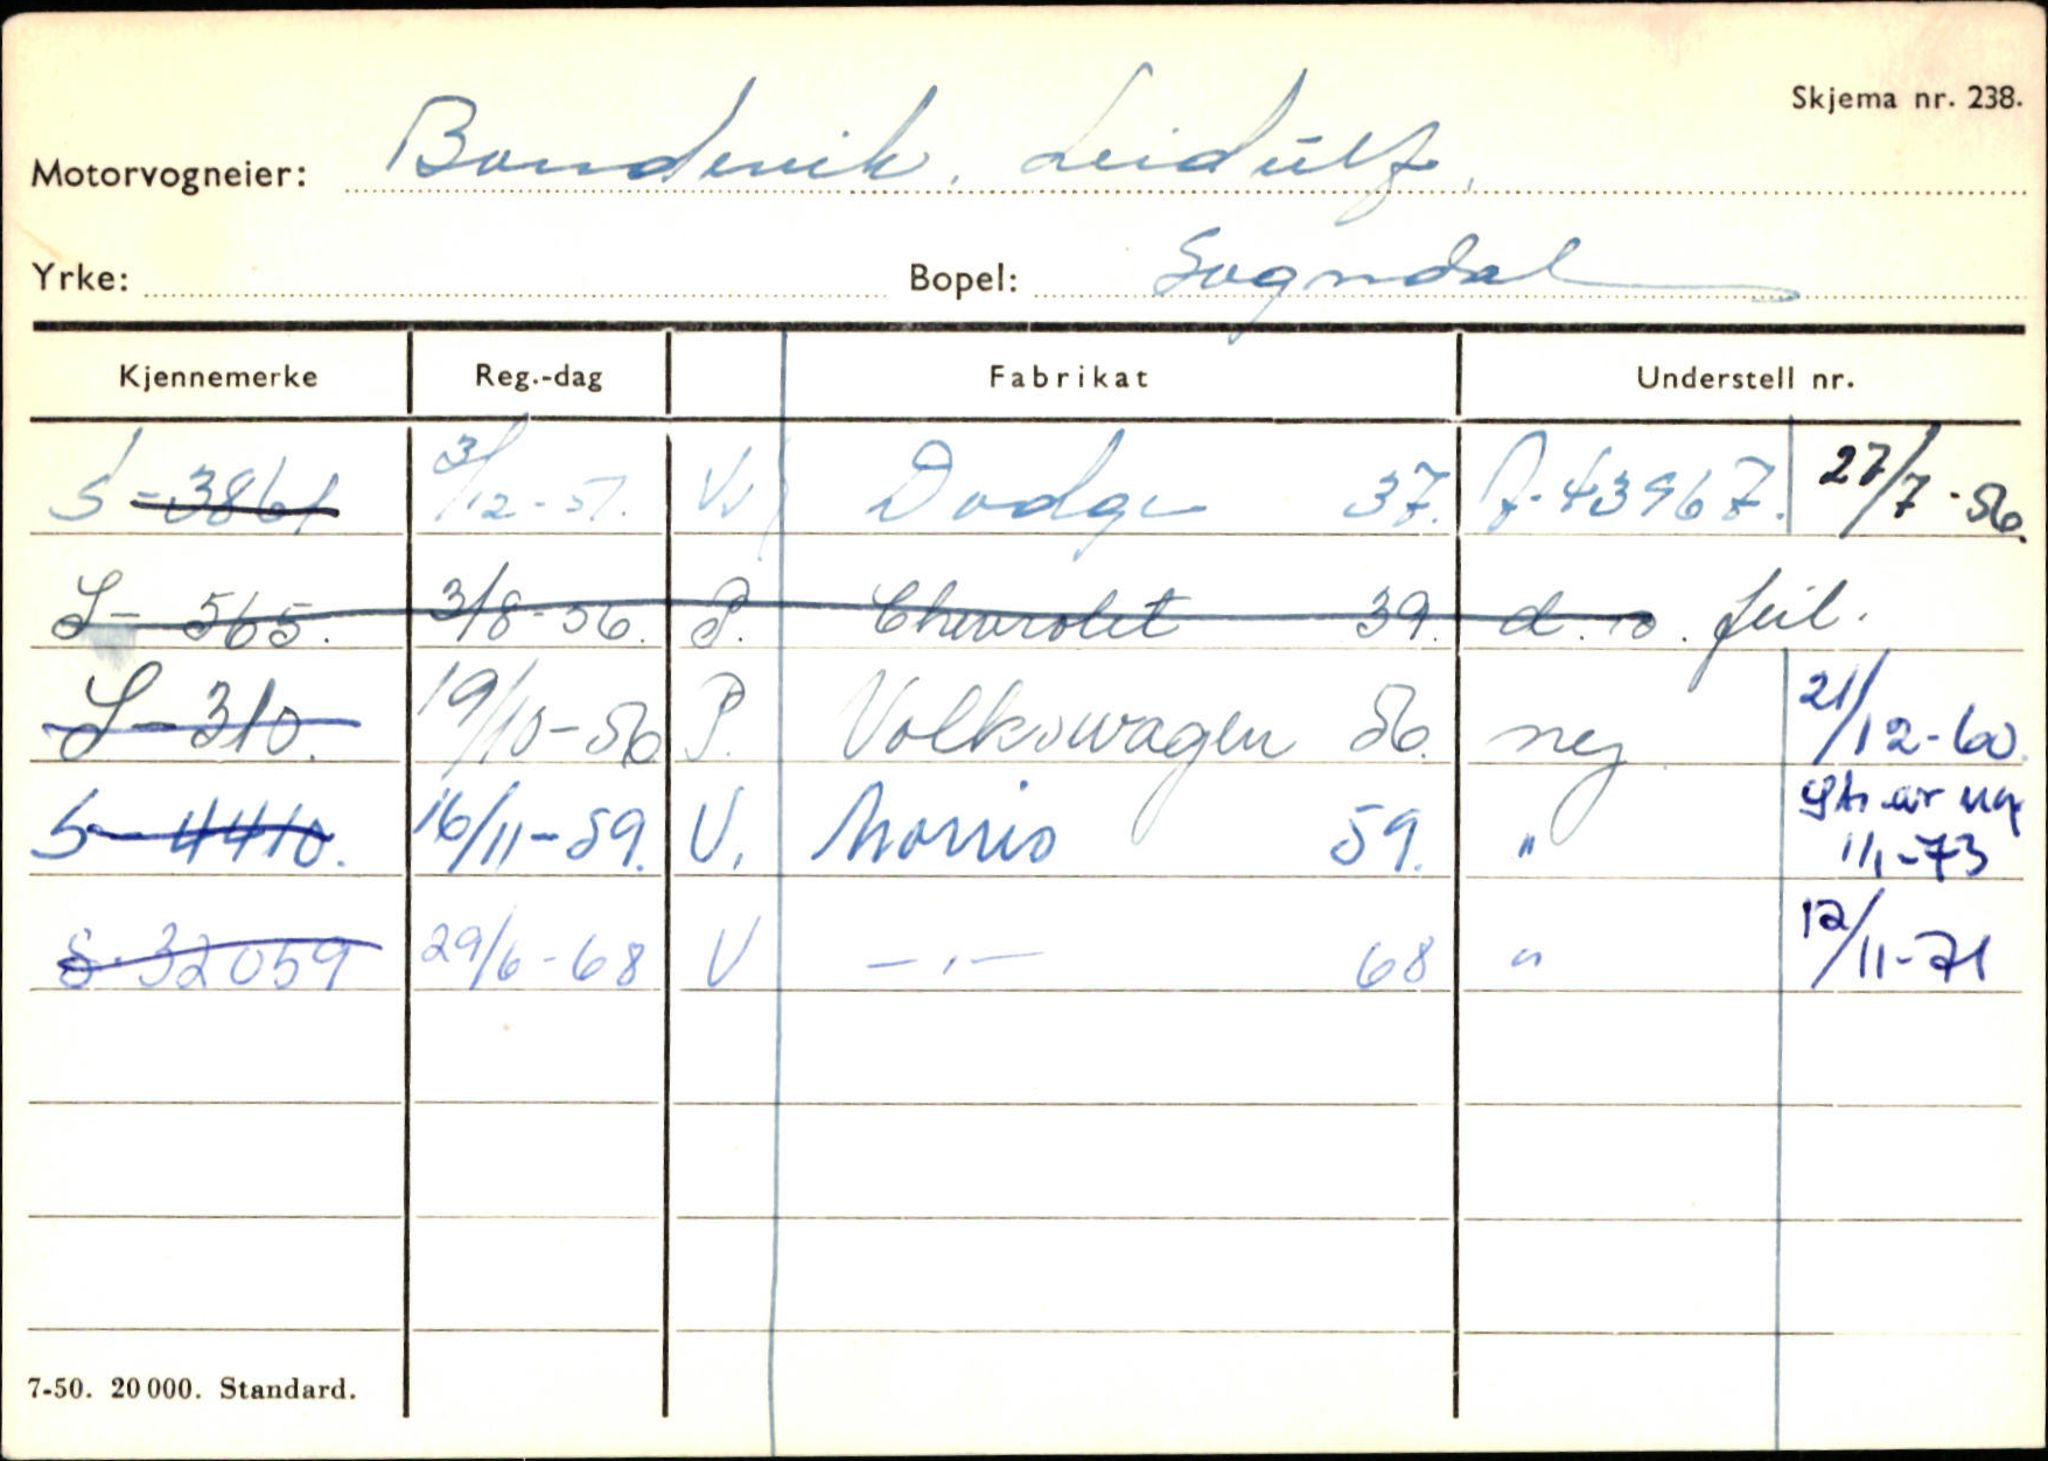 Skjema nr. 238.
Motorvogneier: Bondevik, Leidulf.
Yrke: Bopel: Sogndal
Kjennemerke Reg.-dag Fabrikat Understell nr.
S-3861 3/12-51. V. Dodge 37. 43967. 27/7-56.
S-565. 3/8-56. P. Chevrolet 39. d.o. feil.
S-310. 19/10-56 P. Volkswagen 56. nej 21/12-60.
S-4410. 16/11-59. V. Morris 59. " 1/1-73
S-32059 29/6-68 V -"- 68 " 12/11-71
7-50. 20 000. Standard.